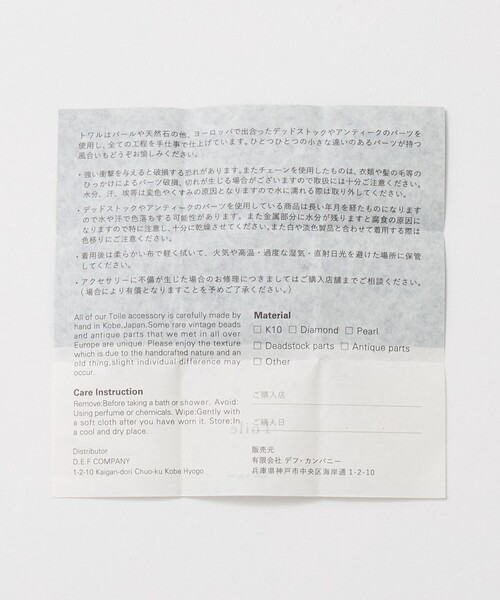 トワルはパールや天然石の他、ヨーロッパで出合ったデッドストックやアンティークのパーツを
使用し、全ての工程を手仕事で仕上げています。ひとつひとつの小さな違いのあるパーツが持つ
風合いもどうぞお愉しみください。
・強い衝撃を与えると破損する恐れがあります。またチェーンを使用したものは、衣類や髪の毛等の
ひっかけによるパーツ破損、切れが生じる場合がございますので取扱には十分ご注意ください。
水分、汗、埃等は変色やくすみの原因となりますので水に濡れる際は取り外してください。
・デッドストックやアンティークのパーツを使用している商品は長い年月を経たものになります
ので水や汗で色落ちする可能性があります。また金属部分に水分が残りますと腐食の原因に
なりますので特に注意し、十分に乾燥させてください。また白や淡色製品と合わせて着用する際は
色移りにご注意ください。
・着用後は柔らかい布で軽く拭いて、火気や高温・過度な湿気・直射日光を避けた場所に保管
してください。
・アクセサリーに不備が生じた場合のお修理につきましてはご購入店舗までご相談ください。
(場合により有償となりますことを予めご了承ください。)
All of our Toile accessory is carefully made by
hand in Kobe,Japan.Some rare vintage beads
and antique parts that we met in all over
Europe are unique. Please enjoy the texture
which is due to the handcrafted nature and an
old thing,slight individual difference may
occur.
Care Instruction
Remove:Before taking a bath or shower. Avoid:
Using perfume or chemicals. Wipe:Gently with
a soft cloth after you have worn it. Store:In
a cool and dry place.
Distributor
D.E.F COMPANY
1-2-10 Kaigan-dori Chuo-ku Kobe Hyogo
Material
□ K10 □ Diamond □ Pearl
□ Deadstock parts □ Antique parts
□ Other
ご購入店
ご購入日
Toile
販売元
有限会社 デフ・カンパニー
兵庫県神戸市中央区海岸通 1-2-10